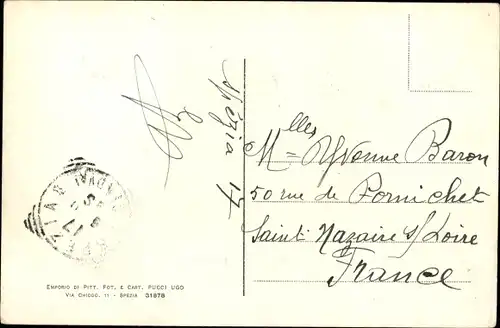 Spezia 17
Mlles Yvonne Baron
50 rue de Pornichet
Saint Nazaire s/Loire
France
EMPORIO DI PITT. FOT. E CART. PUCCI UGO
VIA CHIODO, 11 - SPEZIA 31878